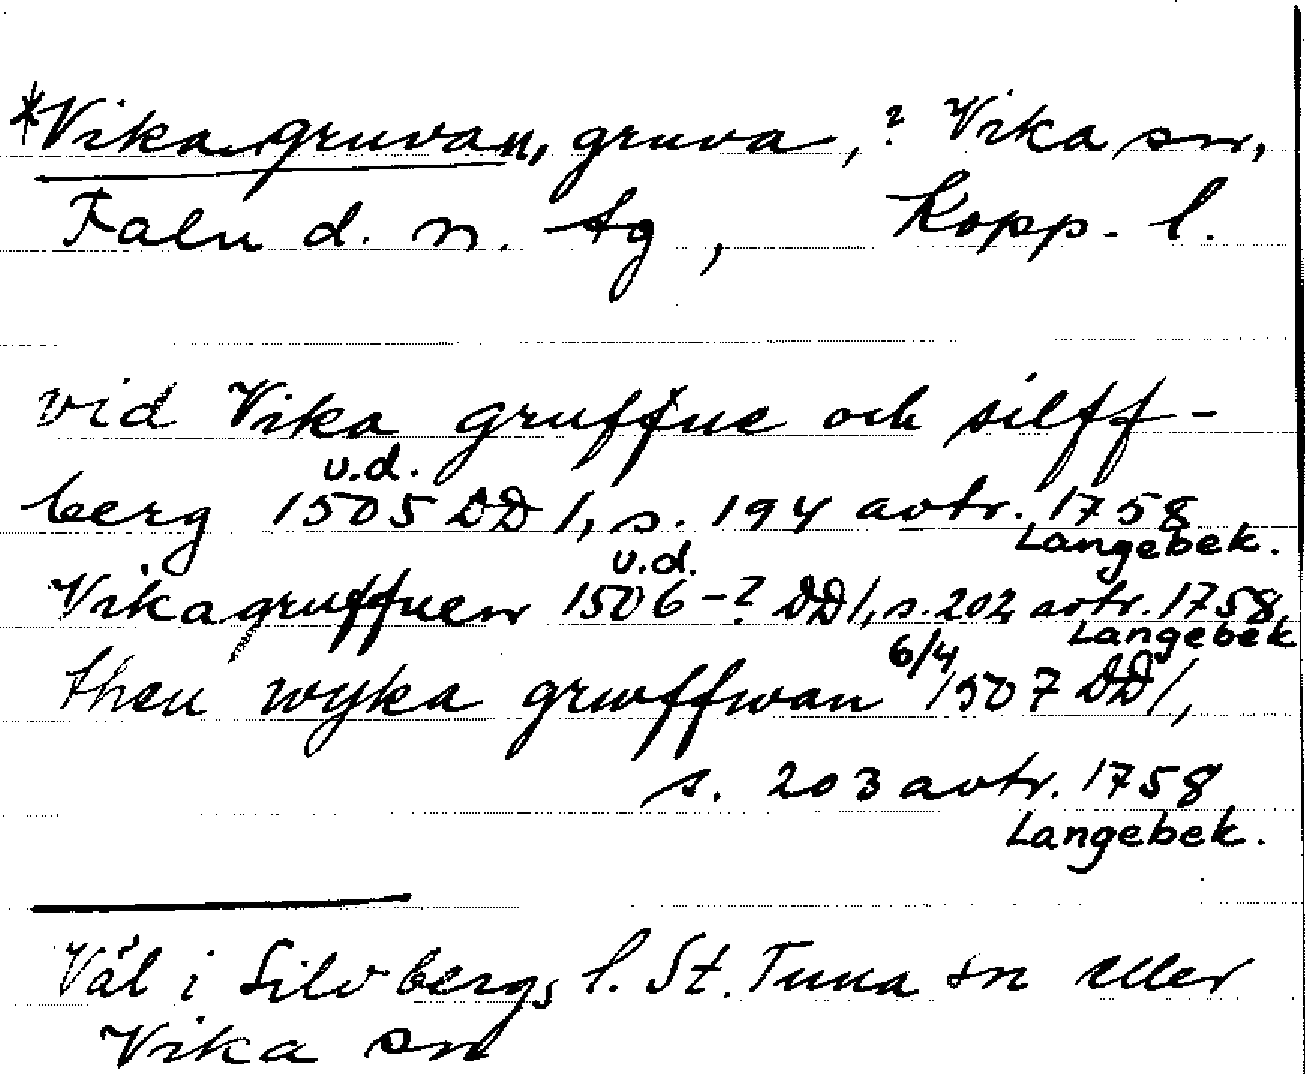 *Vikagruvan, gruva, ? Vika sn,
Falu d. n. tg, Kopp. l.
vid Vika gruffue och silff-
berg 1505 u.d. DD 1, s. 194 avtr. 1758 Langebek.
Vikagruffuen 1506-? u.d. DD 1, s. 202 avtr. 1758 Langebek
then wyka grwffwan 6/4 1507 DD 1,
s. 203 avtr. 1758
Langebek.
Väl i Silvbergs l. St. Tuna sn eller
Vika sn